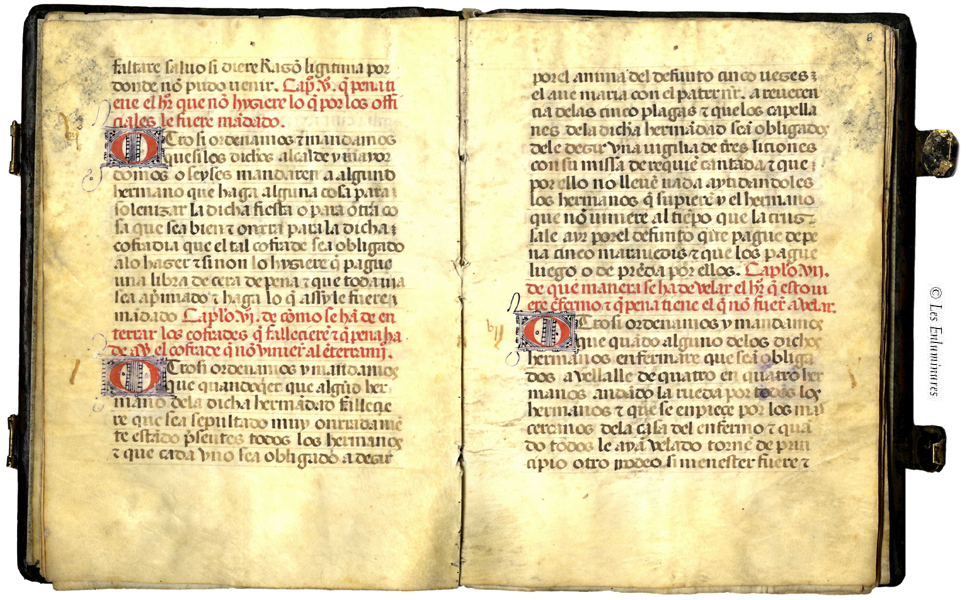 faltare saluo si diere Ragō ligitima por
donde nō pudo uenir. Capº. v. q̄ pena ti
ene el hrº que nō hyziere lo q̄ por los offi
ciales le fuere mādado.
Otrosi ordenamos ⁊ mandamos
que si los dichos alcalde y mayor
domos o seyses mandaren a algund
hermano que haga alguna cosa para
solenizar la dicha fiesta o para otra co
sa que sea bien ⁊ onrra para la dicha
cofadia que el tal cofrade sea obligado
a lo hazer ⁊ si non lo hyziere q̄ pague
una libra de cera de pena ⁊ que todauia
sea ap̄miado ⁊ haga lo q̄ assy le fuere
mādado Caplºo. vj. de cōmo se hā de en
terrar los cofrades q̄ fallecierē ⁊ q̄ pena ha
de el cofrade q̄ nō vinier al ēterramj̄.
Otrosi ordenamos y mandamos
que quandoqer que algūd her
mano dela dicha hermādad falleçie
re que sea sepultado muy onrradamē
te estādo p̄sentes todos los hermanos
⁊ que cada vno sea obligado a dezir
por el anima del defunto cinco uezes
el aue maria con el pater nr̄. a reueren
cia delas cinco plagas ⁊ quelos capella
nes dela dicha hermādad seā obligados
dele dezir vna uigilia de tres liciones
con su missa de requiē cantada ⁊ que
por ello no lleuē nada ayudandoles
los hermanos q̄ supierē y el hermano
que nō uiniere al tiēpo que la cruz
sale por el defunto q̄ pague de pe
na cinco marauedis ⁊ que los pague
luego o de prēda por ellos. Caplºo vij.
de que manera se ha de velar el hrº q̄ estoui
ere ēfermo ⁊ q̄ pena tiene el q̄ nō fuer̄ a velar.
Otrosi ordenamos y mandamos
que quādo alguno delos dichos
hermanos enfermare que seā obliga
dos a velalle de quatro en quatro her
manos andādo la rueda por todos los
hermanos ⁊ que se enpiece por los mas
cercanos dela casa del enfermo ⁊ quā
do todos le ayā velado torne de prin
cipio otro si menester fuere ⁊
6
© Les Enluminures